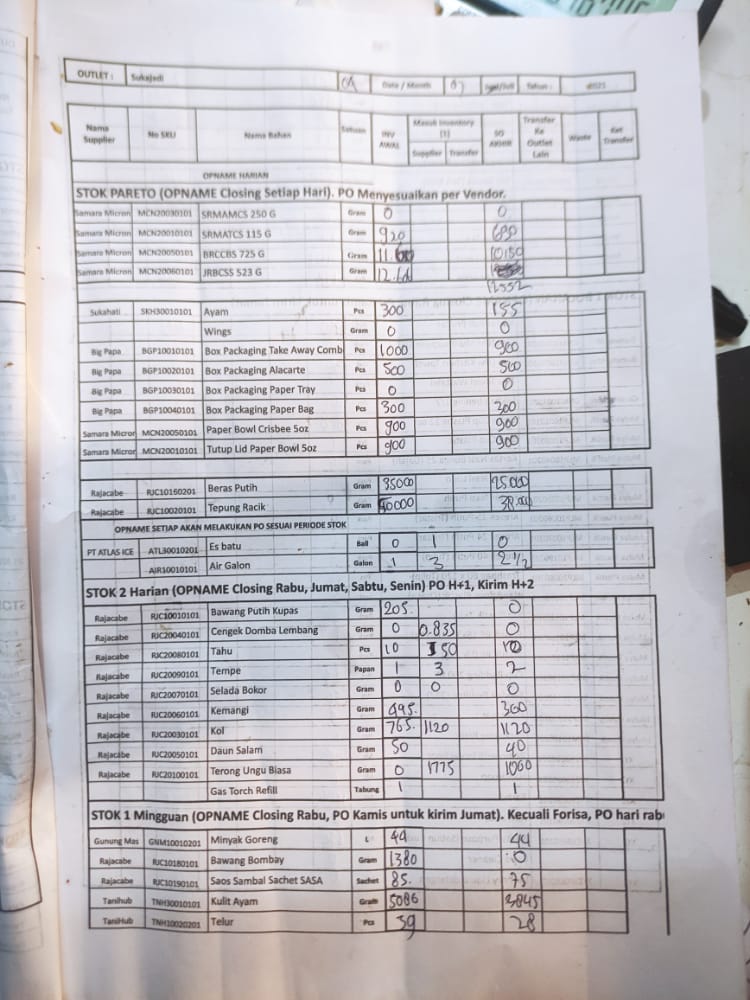 OUTLET : Sukajadi 04 Date / Month 07 Tahun :
Nama Supplier No SKU Nama Bahan Satuan INV AWAL Masuk Inventory (1) Supplier Transfer SO AKHIR Transfer Ke Outlet Lain Waste Ket Transfer
OPNAME HARIAN
STOK PARETO (OPNAME Closing Setiap Hari). PO Menyesuaikan per Vendor.
Samara Micron MCN20030101 SRMAMCS 250 G Gram 0 0
Samara Micron MCN20010101 SRMATCS 115 G Gram 920 690
Samara Micron MCN20050101 BRCCBS 725 G Gram 10150
Samara Micron MCN20060101 JRBCSS 523 G Gram
12552
Sukahati SKH30010101 Ayam Pcs 300 155
Wings Gram 0 0
Big Papa BGP10010101 Box Packaging Take Away Comb Pcs 1000 900
Big Papa BGP10020101 Box Packaging Alacarte Pcs 500 500
Big Papa BGP10030101 Box Packaging Paper Tray Pcs 0 0
Big Papa BGP10040101 Box Packaging Paper Bag Pcs 300 300
Samara Micror MCN20050101 Paper Bowl Crisbee 5oz Pcs 900 900
Samara Micror MCN20010101 Tutup Lid Paper Bowl 5oz Pcs 900 900
Rajacabe RJC10160201 Beras Putih Gram 35000
Rajacabe RJC10020101 Tepung Racik Gram 40000
OPNAME SETIAP AKAN MELAKUKAN PO SESUAI PERIODE STOK
PT ATLAS ICE ATL30010201 Es batu Ball 0 1 0
AIR10010101 Air Galon Galon 1 3 2 1/2
STOK 2 Harian (OPNAME Closing Rabu, Jumat, Sabtu, Senin) PO H+1, Kirim H+2
Rajacabe RJC10010101 Bawang Putih Kupas Gram 205. 0
Rajacabe RJC20040101 Cengek Domba Lembang Gram 0 0.835 0
Rajacabe RJC20080101 Tahu Pcs 10 50 10
Rajacabe RJC20090101 Tempe Papan 1 3 2
Rajacabe RJC20070101 Selada Bokor Gram 0 0 0
Rajacabe RJC20060101 Kemangi Gram 495. 360
Rajacabe RJC20030101 Kol Gram 765. 1120 1120
Rajacabe RJC20050101 Daun Salam Gram 50 40
Rajacabe RJC20100101 Terong Ungu Biasa Gram 0 1775 1060
Gas Torch Refill Tabung 1 1
STOK 1 Mingguan (OPNAME Closing Rabu, PO Kamis untuk kirim Jumat). Kecuali Forisa, PO hari rab
Gunung Mas GNM10010201 Minyak Goreng L 44 44
Rajacabe RJC10180101 Bawang Bombay Gram 1380 0
Rajacabe RJC10190101 Saos Sambal Sachet SASA Sachet 85. 75
Tanihub TNH30010101 Kulit Ayam Gram 5086 3845
TaniHub TNH10020201 Telur Pcs 39 28